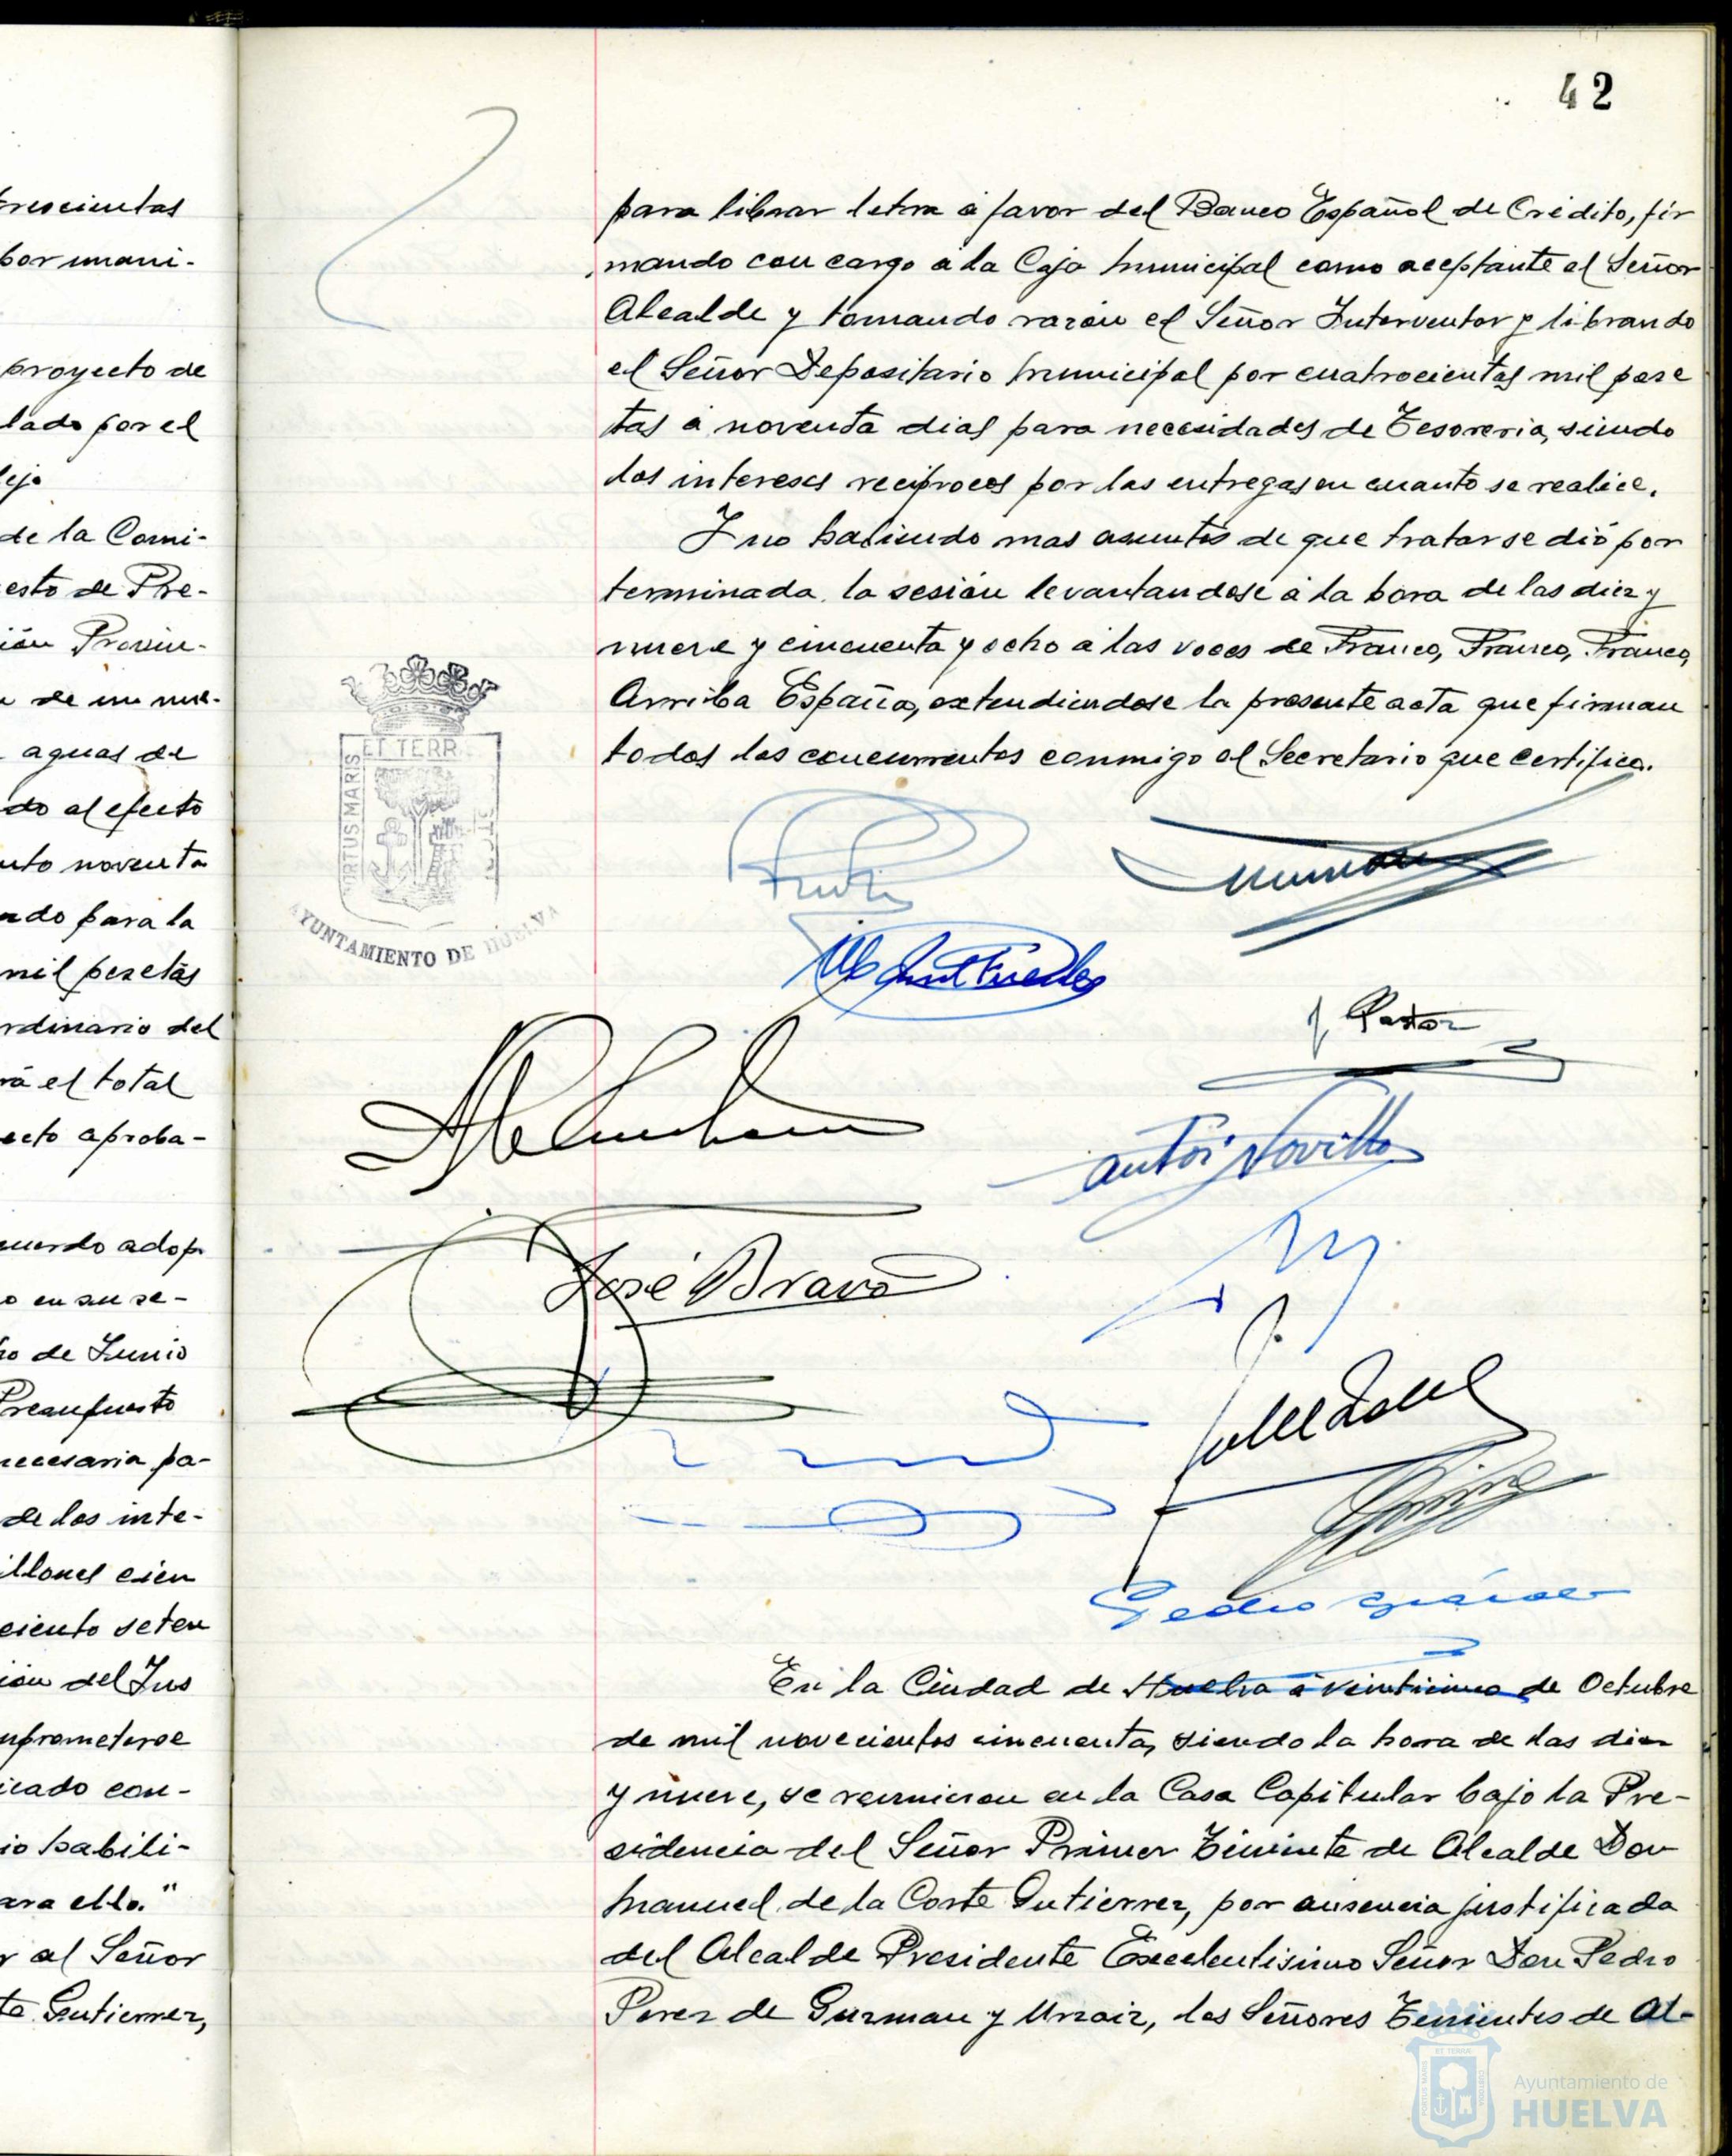 trescientas
por unani-
proyecto de
lado por el
leja
de la Comi-
esto de Pre-
ión Provin-
de un nue-
aguas de
do al efecto
nto noventa
ndo para la
mil pesetas
rdinario del
rá el total
ecto aproba-
uerdo adop
o en su se-
ro de Junio
Presupuesto
necesaria pa-
de los inte-
illones cien
ciento seten
ión del Ins
mprometerse
icado con-
io habili-
ara ello."
r al Señor
te Gutierrez,
42
para librar letra á favor del Banco Español de Crédito, fir
mando con cargo a la Caja Municipal como aceptante el Señor
Alcalde y tomando razón el Señor Interventor y librando
el Señor Depositario Municipal por cuatrocientas mil pese
tas á noventa dias para necesidades de Tesoreria, siendo
los intereses reciprocos por las entregas en cuanto se realice.
Y no habiendo mas asuntos de que tratar se dió por
terminada la sesión levantandose á la hora de las diez y
nueve y cincuenta y ocho a las voces de Franco, Franco, Franco,
Arriba España, extendiendose la presente acta que firman
todos los concurrentes conmigo el Secretario que certifico.
ET TERR
PORTUS MARIS
AYUNTAMIENTO DE HUELVA
J. Pastor
Antº Novillo
José Bravo
En la Ciudad de Huelva á veinticinco de Octubre
de mil novecientos cincuenta, siendo la hora de las diez
y nueve, se reunieron en la Casa Capitular bajo la Pre-
sidencia del Señor Primer Teniente de Alcalde Don
Manuel de la Corte Gutierrez, por ausencia justificada
del Alcalde Presidente Excelentisimo Señor Don Pedro
Perez de Guzman y Urzaiz, los Señores Tenientes de Al-
Ayuntamiento de
HUELVA